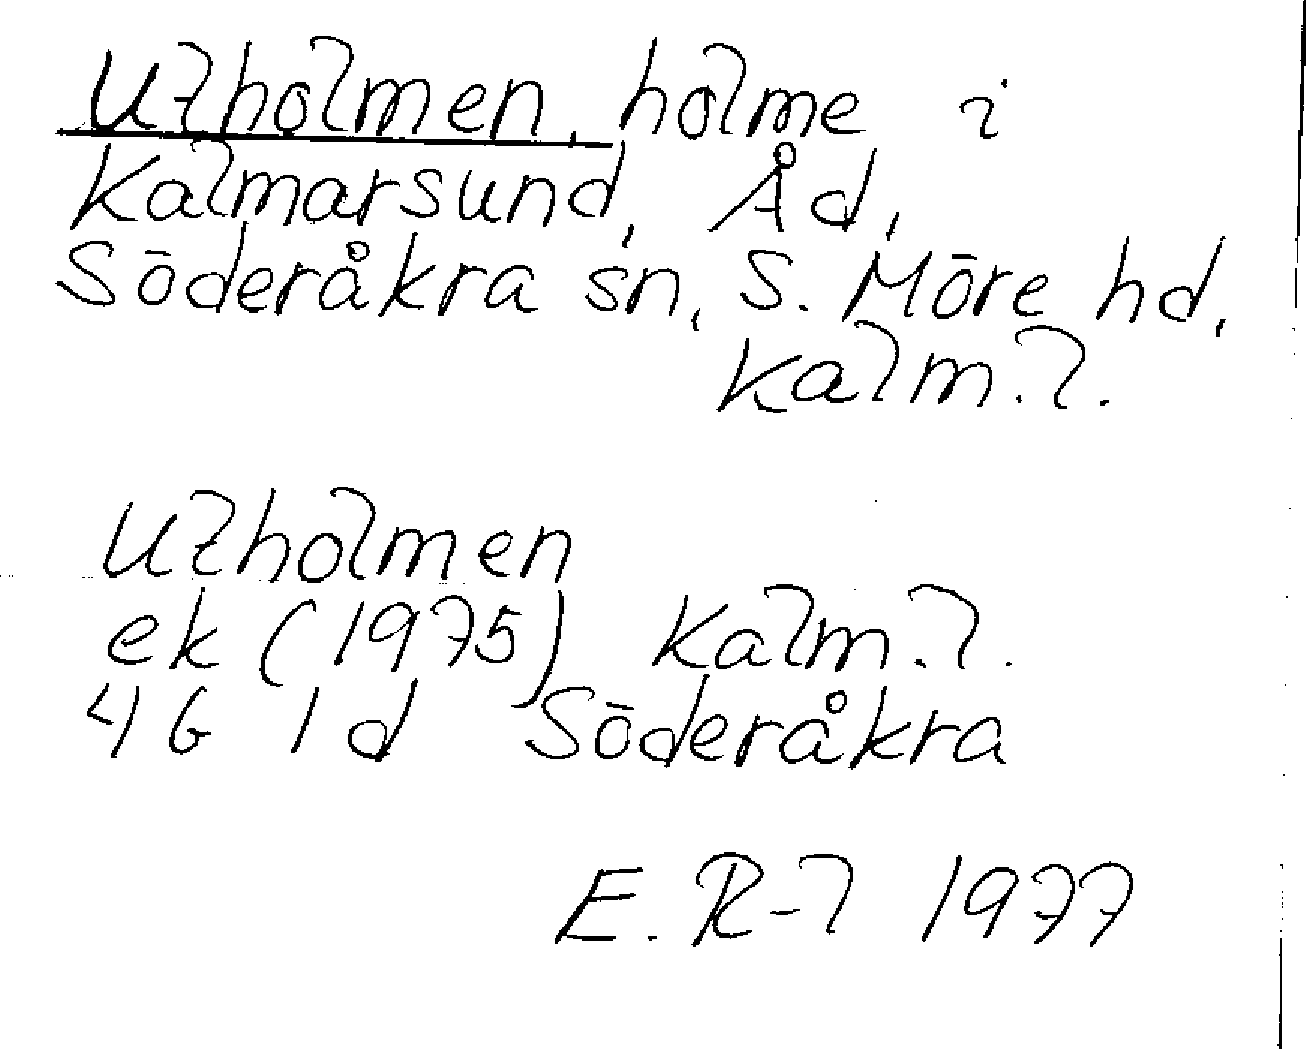 Utholmen, holme i
Kalmarsund, Åd,
Söderåkra sn, S. Möre hd,
Kalm. l.
Utholmen
ek (1975) Kalm. l.
4G 1d Söderåkra
E. R-l 1977